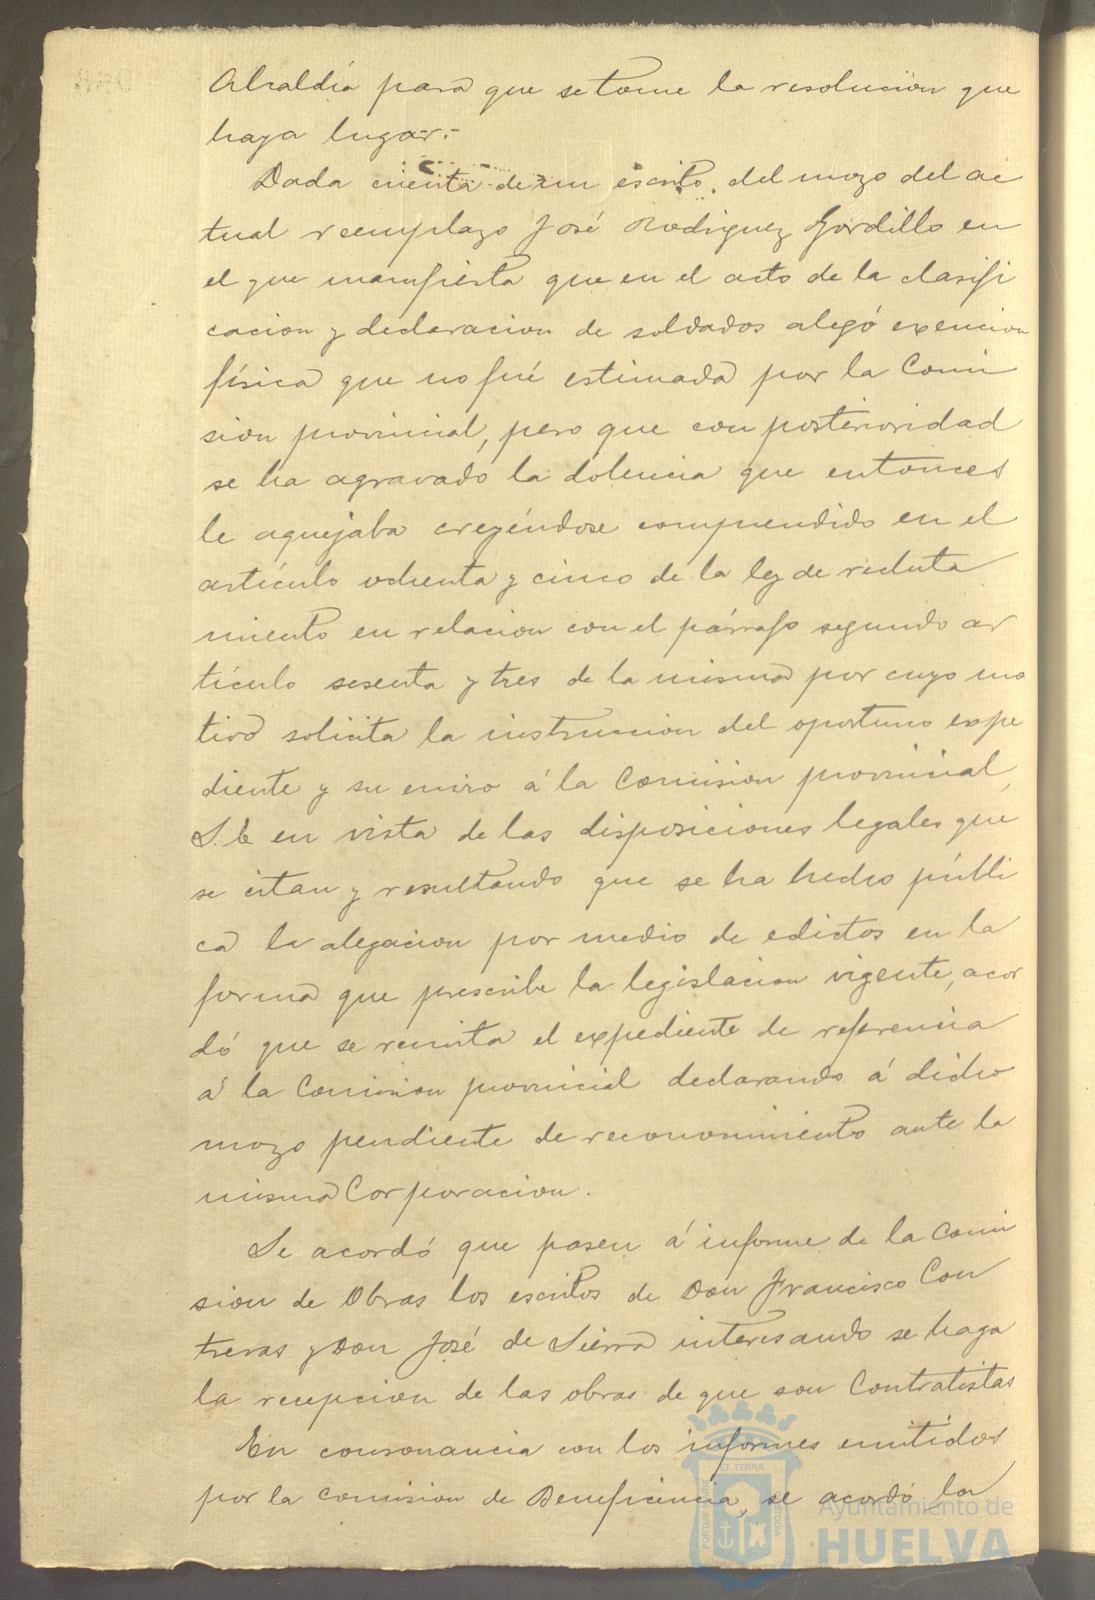 Alcaldía para que se tome la resolucion que
haya lugar.-
Dada cuenta de un escrito, del mozo del ac
tual reemplazo José Rodriguez Gordillo en
el que manifiesta que en el acto de la clasifi
cacion y declaracion de soldados alegó exencion
física que no fué estimada por la Comi
sion provincial, pero que con posterioridad
se ha agravado la dolencia que entonces
le aquejaba creyéndose comprendido en el
artículo ochenta y cinco de la ley de recluta
miento en relacion con el párrafo segundo ar
tículo sesenta y tres de la misma por cuyo mo
tivo solicita la instruccion del oportuno expe
diente y su envio á la Comision provincial,
S. E en vista de las disposiciones legales que
se citan y resultando que se ha hecho públi
ca la alegacion por medio de edictos en la
forma que prescribe la legislacion vigente, acor
dó que se remita el expediente de referencia
á la Comision provincial declarando á dicho
mozo pendiente de reconocimiento ante la
misma Corporacion.
Se acordó que pasen á informe de la Comi
sion de Obras los escritos de Don Francisco Con
treras y Don José de Sierra interesando se haga
la recepcion de las obras de que son Contratistas
En consonancia con los informes emitidos
por la Comision de Beneficencia, se acordó la
Ayuntamiento de
HUELVA